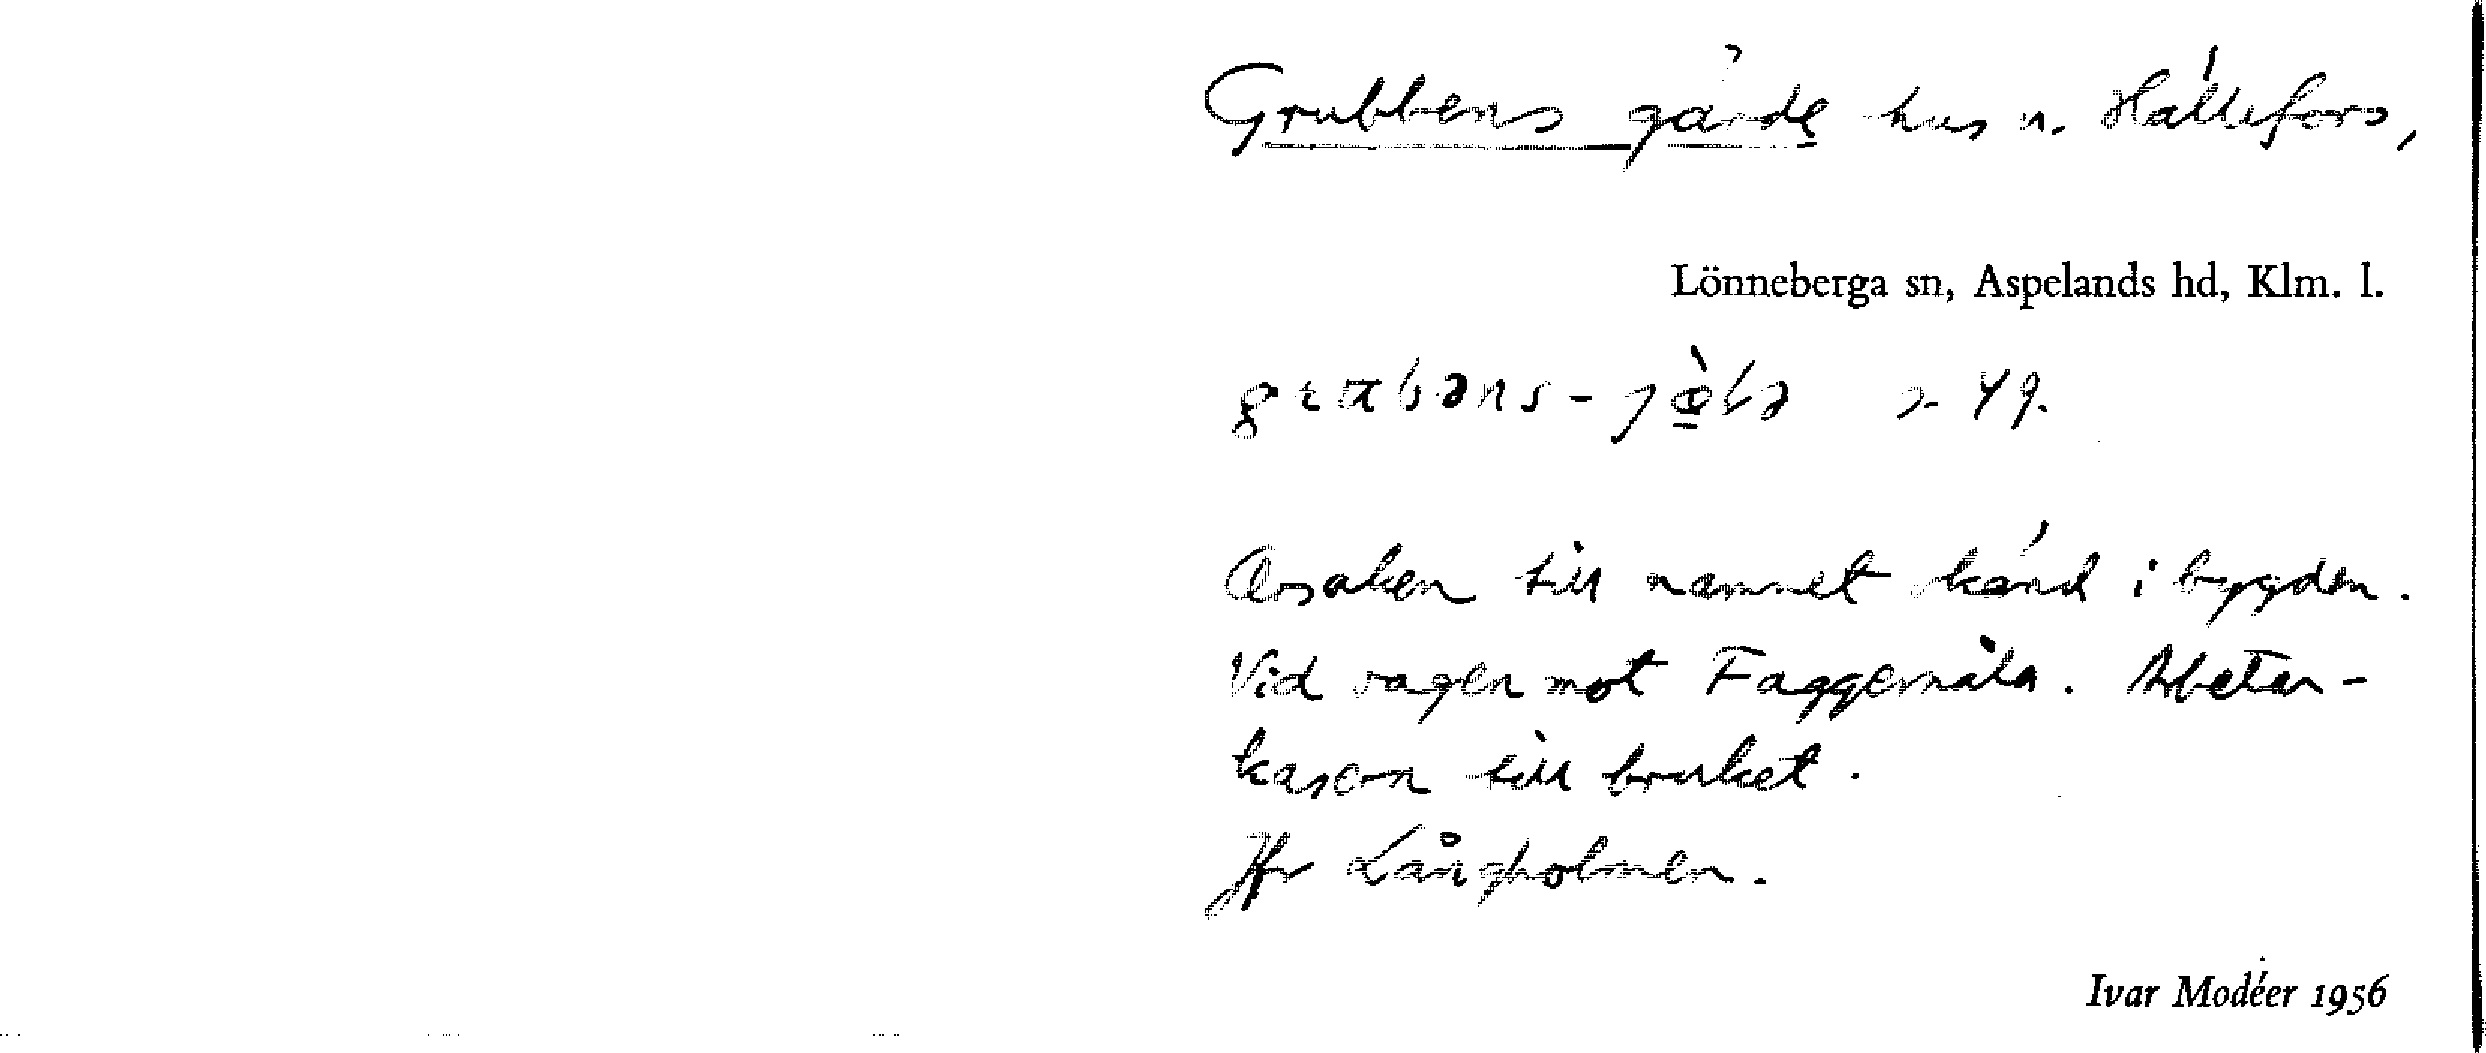 Grubbens gärde hus u. Hällefors,
Lönneberga sn, Aspelands hd, Klm. l.
Orsaken till namnet känd i bygden.
Vid vägen mot Faggemåla. Arbetar-
kasern till bruket.
Jfr Långholmen.
Ivar Modéer 1956